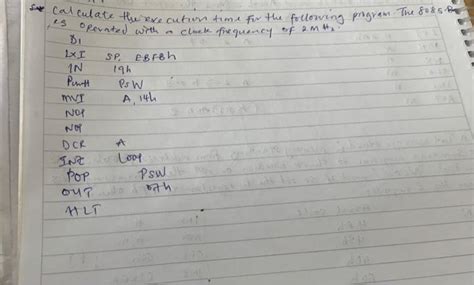 Calculate the execution time for the following program. The 8085
is operated with a clock frequency of 2 MHz.
DI
LXI SP, EBFBh
IN 19h
Push PSW
MVI A, 14h
NOP
NOP
DCR A
JNZ Loop
POP PSW
OUT 07h
HLT